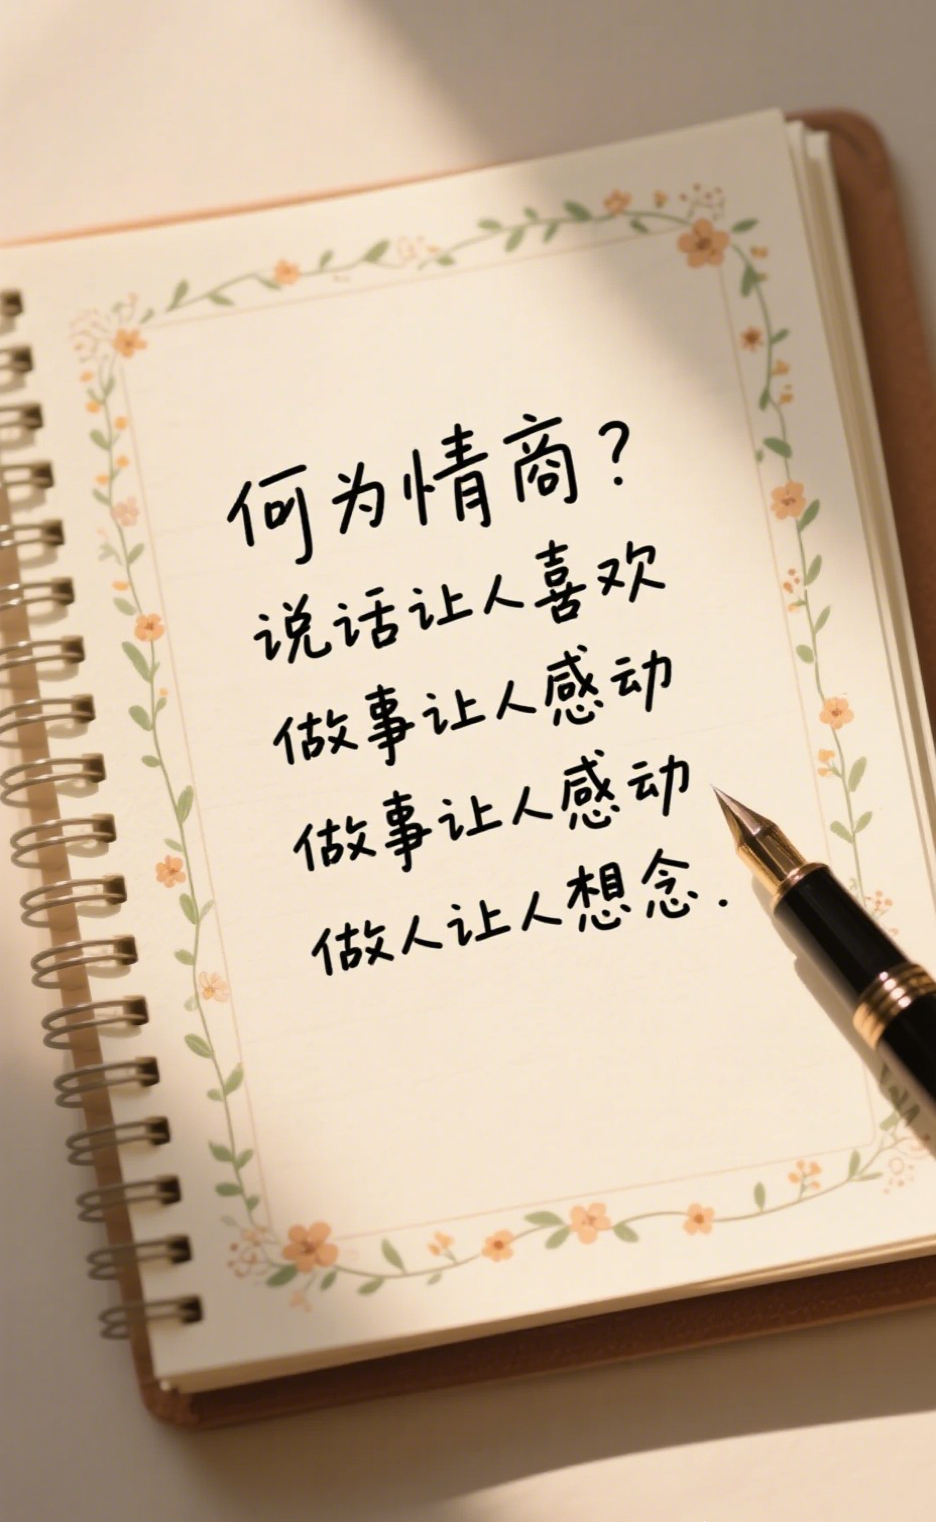 何为情商？
说话让人喜欢
做事让人感动
做事让人感动
做人让人想念.